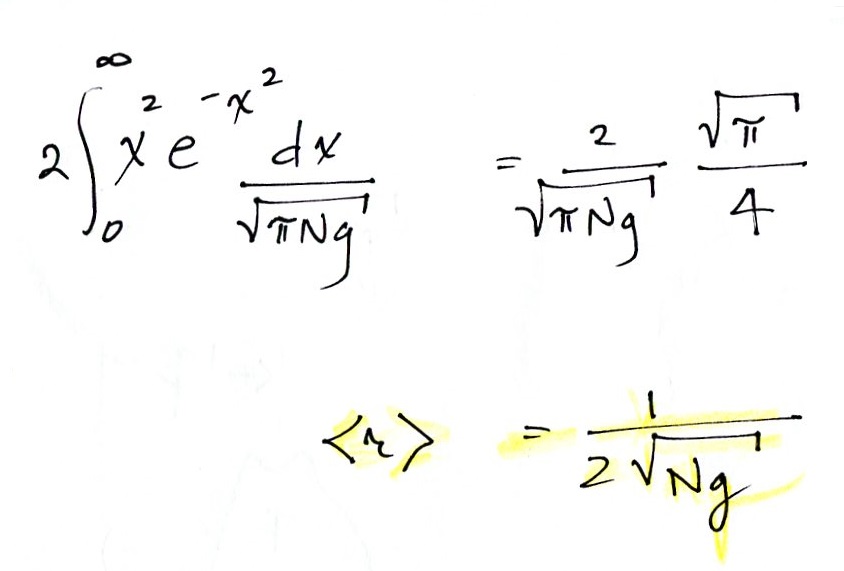 2∫₀^∞ x² e^{-x²} dx/√(πNg) = 2/√(πNg) √π/4
<r> = 1/(2√(Ng))